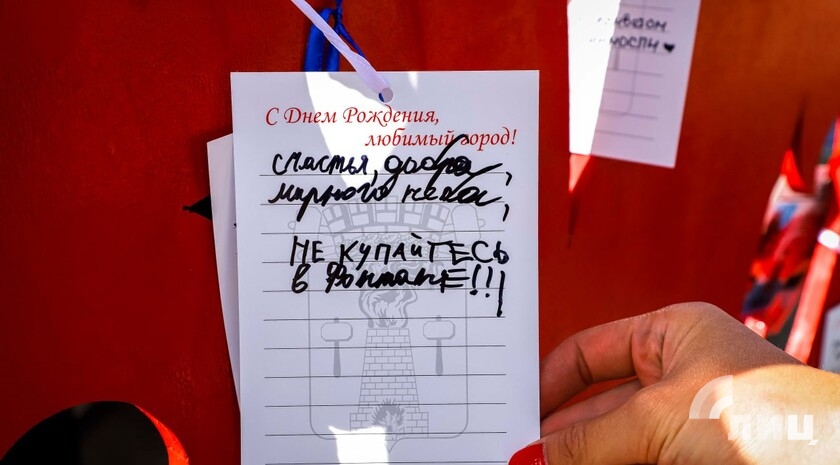 С Днем Рождения,
любимый город!
счастья, добра,
мирного неба,
НЕ КУПАЙТЕСЬ
в Фонтане!!!
мости ♥
ЛИЦ